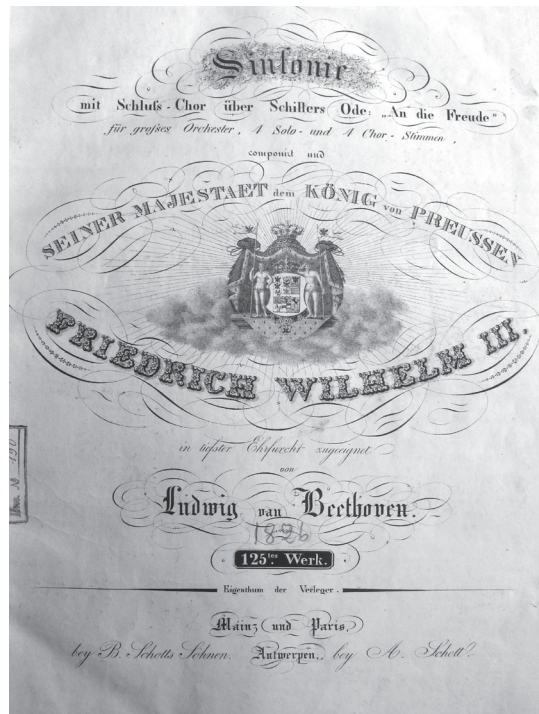 Sinfonie
mit Schluſs-Chor über Schillers Ode: „An die Freude"
für groſses Orchester, 4 Solo- und 4 Chor-Stimmen,
componirt und
SEINER MAJESTAET dem KÖNIG von PREUSSEN
FRIEDRICH WILHELM III.
in tiefster Ehrfurcht zugeeignet
von
Ludwig van Beethoven.
1826
125tes Werk.
Eigenthum der Verleger.
Mainz und Paris,
bey B. Schotts Söhnen. Antwerpen, bey A. Schott.
№ 190